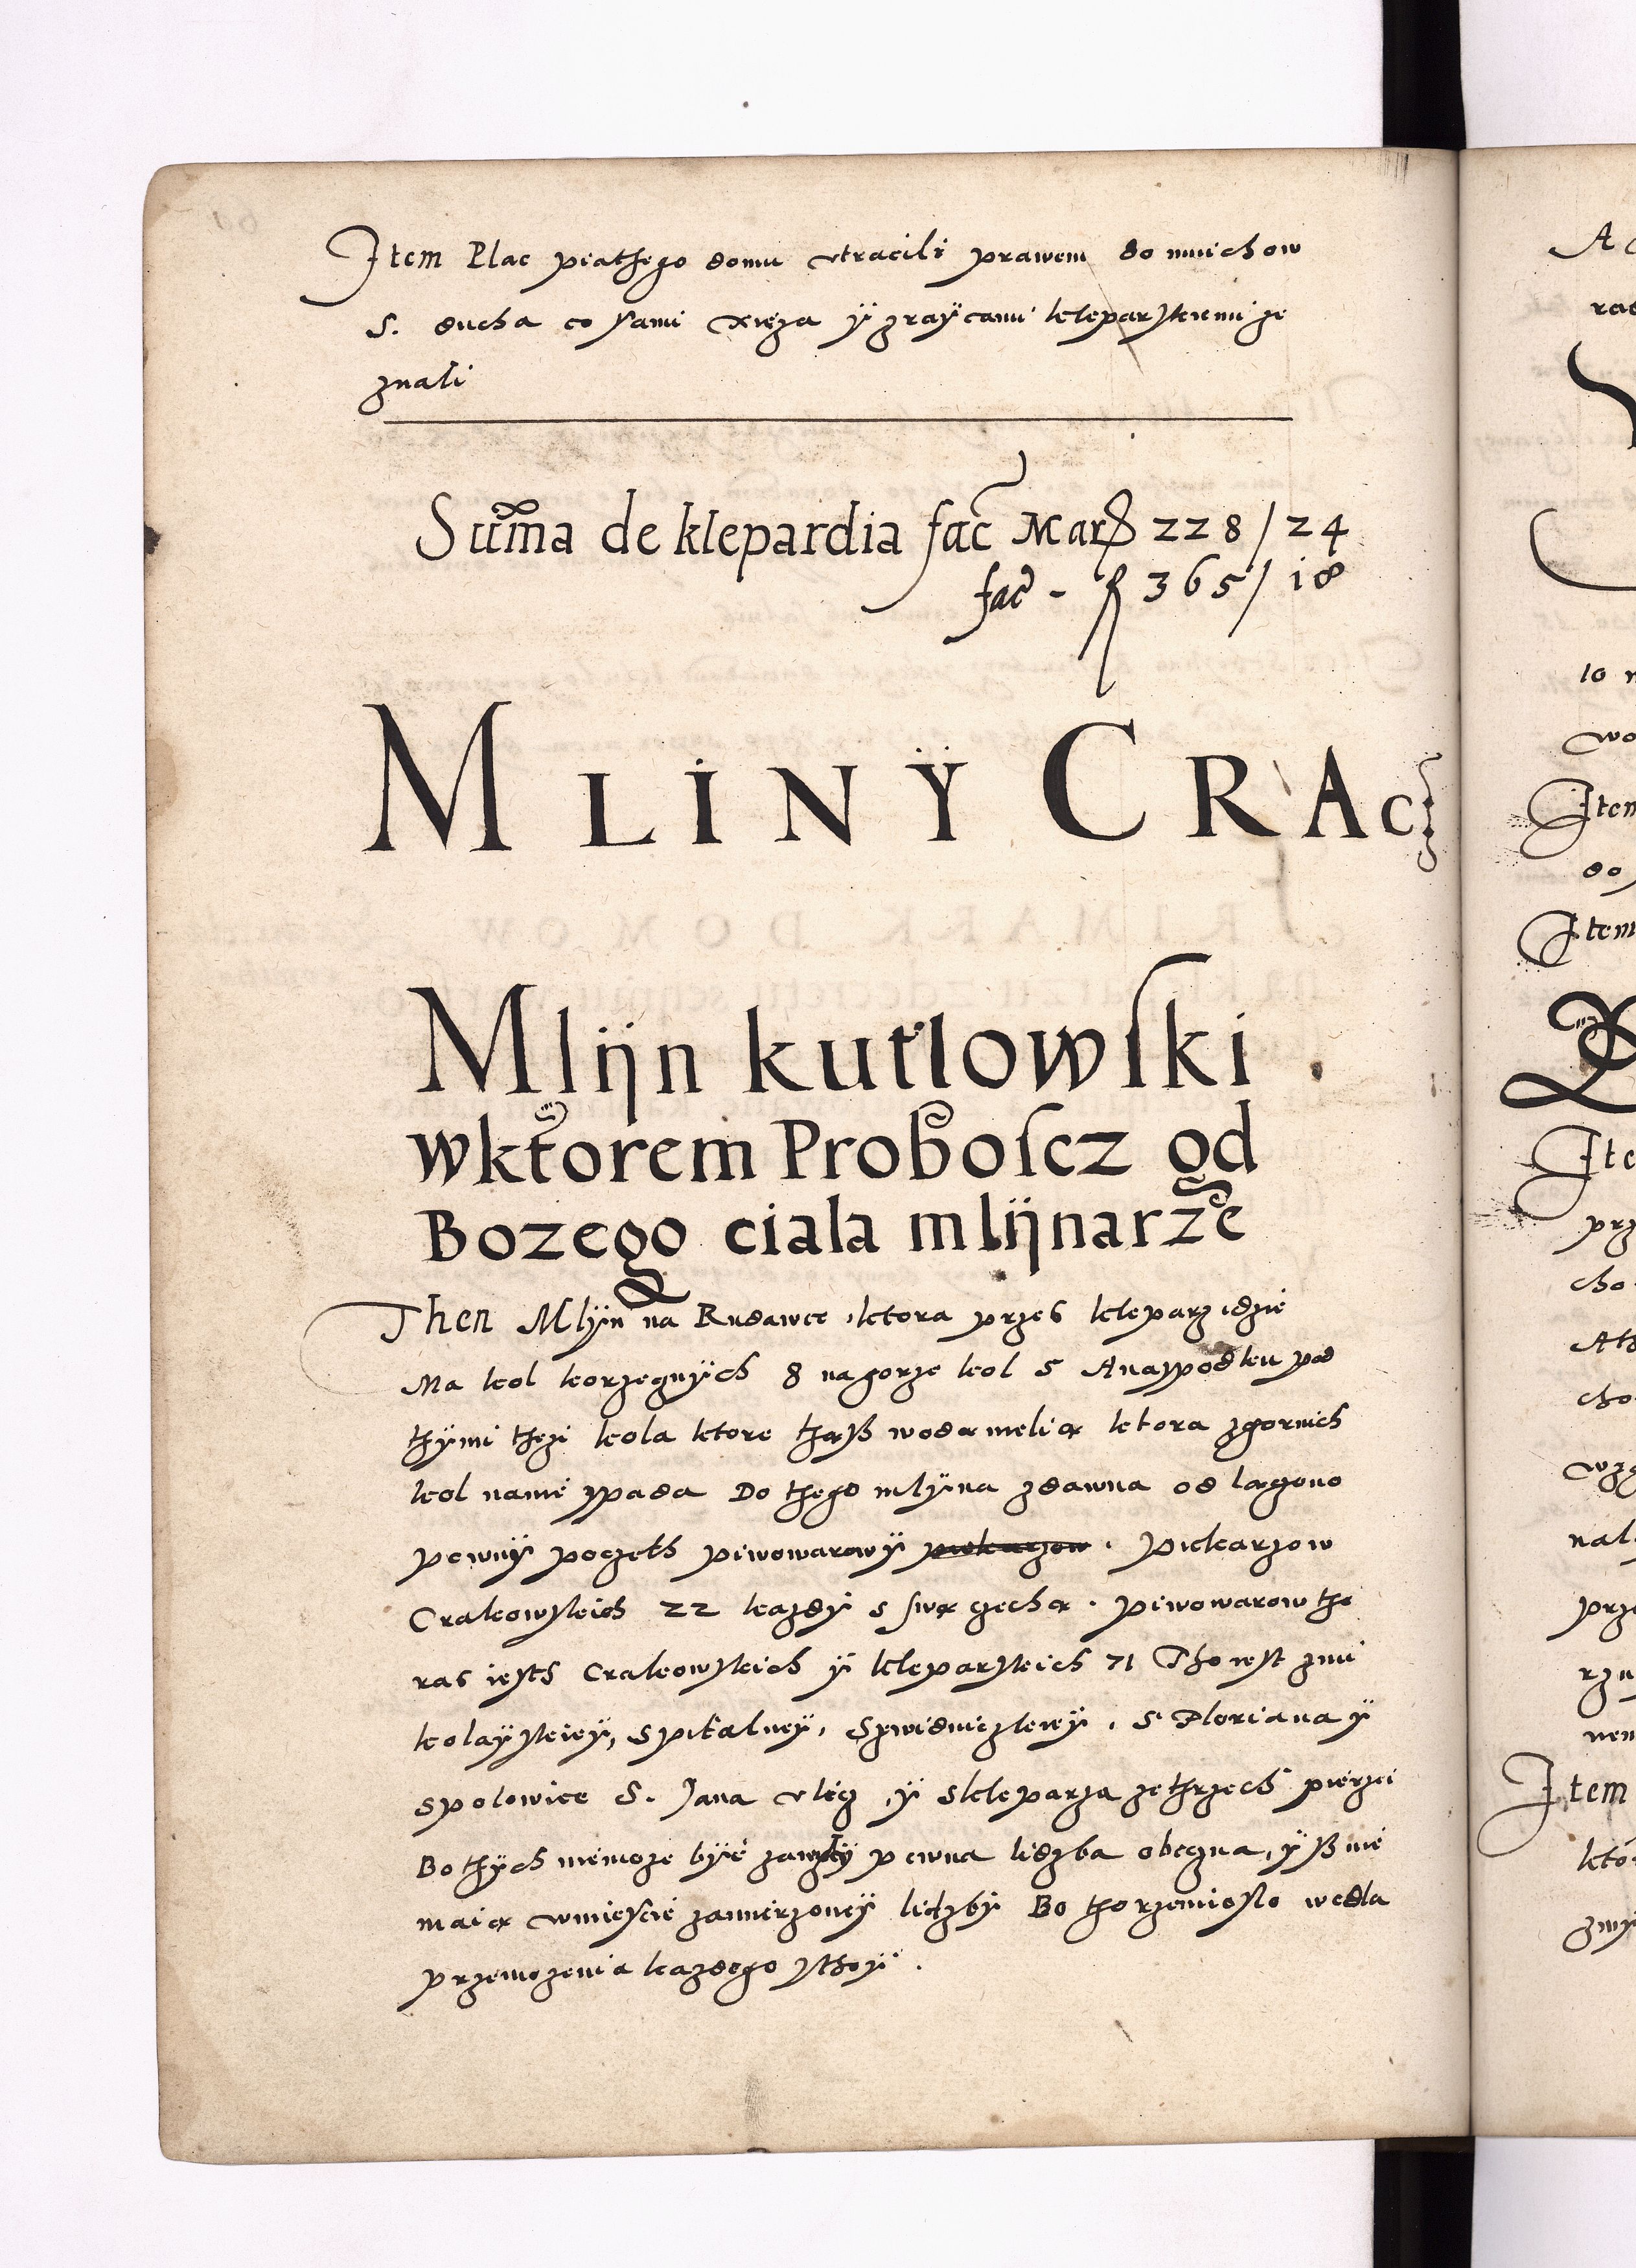 Item Plac piathego domu vtracili prawem do mnichow
S. ducha co sami xięza ÿ zraÿcami kleparskiemi ze
znali
Suma de klepardia fac Mar 228/24
fac - fl 365/18
MLINŸ CRAC
Mlijn kutlowski
wktorem Proboscz od
Bozego ciala mlijnarze
Then Mlÿn na Rudawce ktora przes kleparz idzie
Ma kol korzeznÿch 8 nagorze kol 5 Anaspodku pod
thÿmi thrzi kola ktore thaß woda mieliα ktora zgornich
kol nanie spada Do thego mlÿna zdawna od
pewnÿ poczeth piwowarowÿ piekarzow. piekarzow
Crakowskich 22 kazdÿ s swα czechα. piwowarow the
ras iesth Crakowskich ÿ kleparskich 71 Tho iest zmi
kolaÿskieÿ, spitalneÿ, Szwidniczkieÿ, S Floriana ÿ
spolowice S. Jana vlicz, ÿ skleparza zethrzech pierzei
Bo thÿch niemoze bÿć zawzdÿ pewna lidzba obeczna, ÿß nie
maiα wmiescie zamierzoneÿ lidzbÿ Bo tho rzemioslo wedla
przemozenia kazdego sthoÿ.